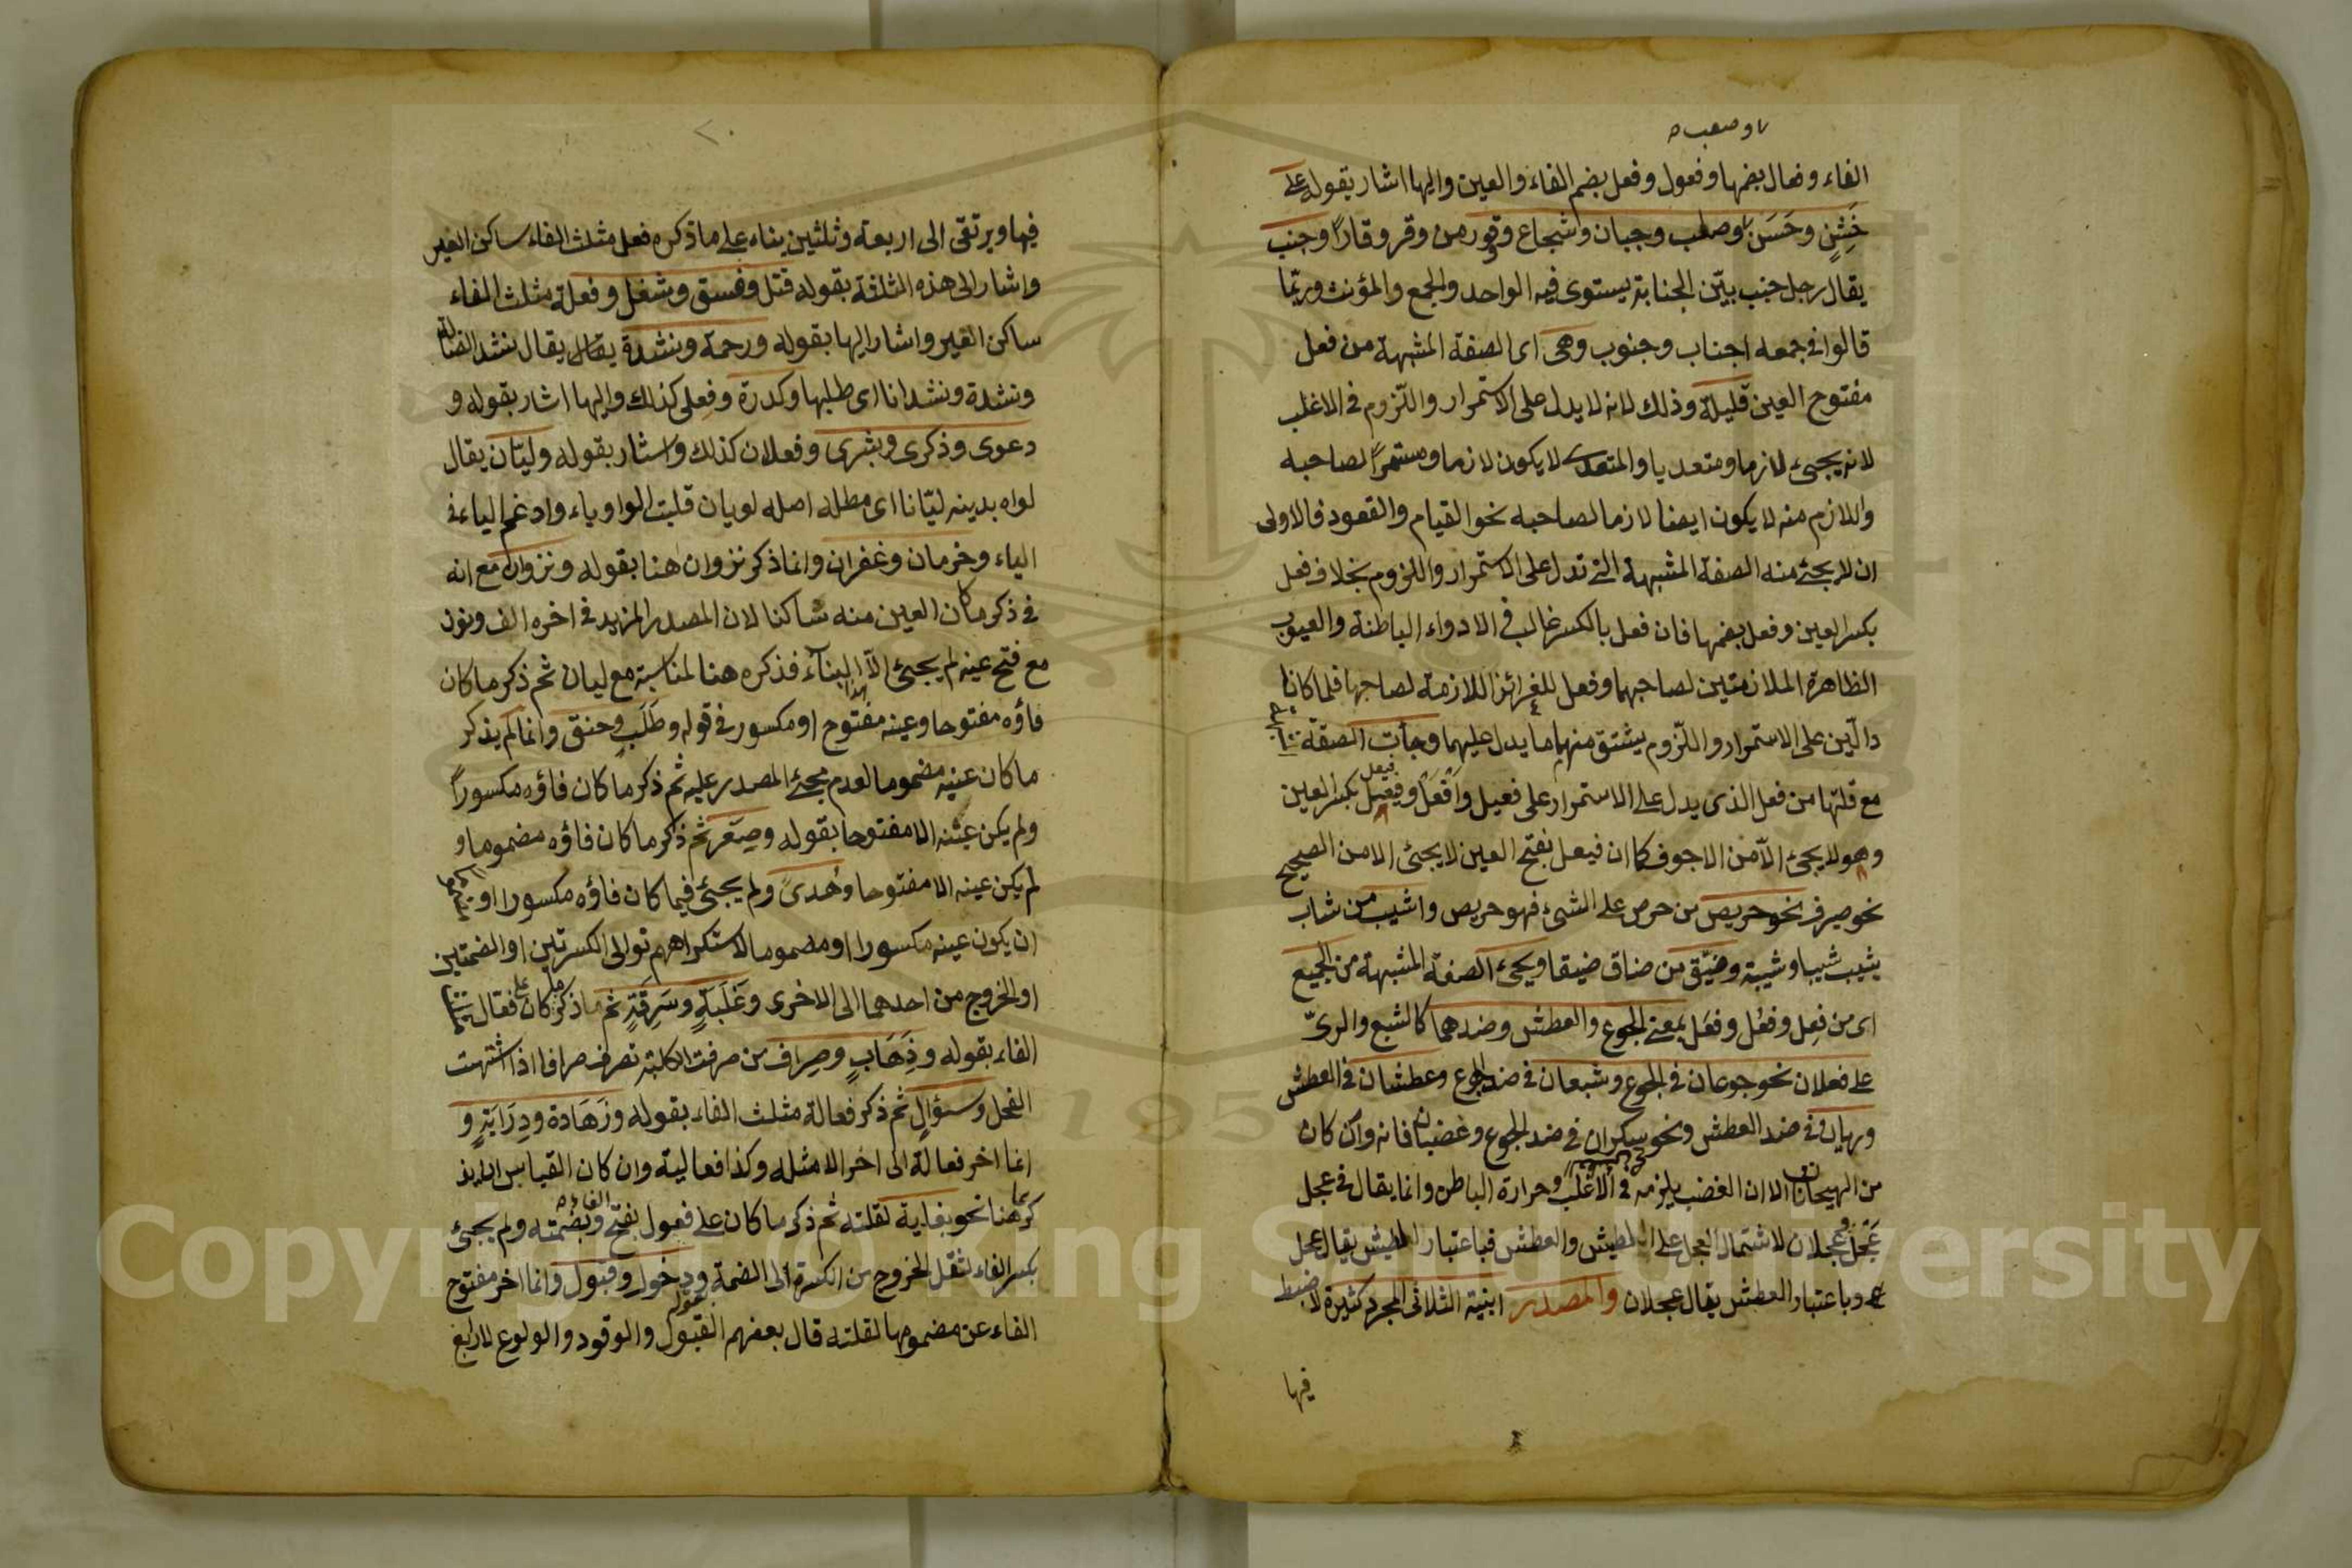 وصعب
الفاء وفعال بضمها وفعول وفعل بضم الفاء والعين واليها اشار بقوله على
خَشِنٍ وحَسَن وصلب وجبان وشجاع وقور من وقر وقارًا وجنب
يقال رجل جنب بيّن الجنابة يستوى فيه الواحد والجمع والمؤنث وربّما
قالوا فى جمعه اجناب وجنوب وهى اى الصفة المشبهة من فعل
مفتوح العين قليلة وذلك لانه لا يدل على الاستمرار واللّزوم فى الاغلب
لانه يجىء لازما ومتعديا والمتعدى لا يكون لازما ومستمرًا لصاحبه
واللازم منه لا يكون ايضا لازما لصاحبه نحو القيام والقعود فالاولى
ان لا يجئ منه الصفة المشبهة التى تدل على الاستمرار واللزوم بخلاف فعل
بكسر العين وفعل بضمها فان فعل بالكسر غالب فى الادواء الباطنة والعيوب
الظاهرة الملازمتين لصاحبهما وفعل للغرائز اللازمة لصاحبها فلما كانا
دالّين على الاستمرار واللّزوم يشتق منهما ما يدل عليهما وجأت الصفة
مع قلتها من فعل الذى يدل على الاستمرار على فعيل وافعل وفيعل بكسر العين
وهو لا يجئ الّا من الاجوف كما ان فيعل بفتح العين لا يجئ الا من الصحيح
نحو صيرف نحو حريص من حرص على الشىء فهو حريص واشيب من شاب
يشيب شيبا وشيبة وضيّق من ضاق ضيقا ويجىء الصفة المشبهة من الجميع
اى من فعِل وفعُل وفعَل بمعنى الجوع والعطش وضدهما كالشبع والرىّ
على فعلان نحو جوعان فى الجوع وشبعان فى ضد الجوع وعطشان فى العطش
وريان فى ضد العطش ونحو سكران فى ضد الجوع وغضبان فانه وان كان
من الهيجان الا ان الغضب يلزمه فى الاغلب وحرارة الباطن وانما يقال فى عجل
عَجِل وعجلان لاشتمال العجل على الطيش والعطش فباعتبار الطيش يقال عجل
وباعتبار العطش يقال عجلان والمصدر ابنية الثلاثى المجرد كثيرة لا ضبط
فيها
٢٠
فيها ويرتقى الى اربعة وثلثين بناء على ما ذكره فعل مثلث الفاء ساكن العين
واشار الى هذه الثلثة بقوله قتل وفسق وشغل وفعلة مثلث الفاء
ساكن العين واشار اليها بقوله ورحمة ونشدة يقال يقال نشد الضالة
ونشدة ونشدانا اى طلبها وكدرة وفعلى كذلك واليها اشار بقوله و
دعوى وذكرى وبشرى وفعلان كذلك واشار بقوله وليّان يقال
لواه بدينه ليّانا اى مطله اصله لويان قلبت الواو ياء وادغم الياء فى
الياء وحرمان وغفران وانما ذكر نزوان هنا بقوله ونزوان مع انه
فى ذكر ما كان العين منه ساكنا لان المصدر المزيد فى اخره الف ونون
مع فتح عينه لم يجئ الّا هذا البناء فذكره هنا لمناسبة مع ليان ثم ذكر ما كان
فاؤه مفتوحا وعينه مفتوح او مكسور فى قوله وطَلَبٍ وخنق وانما لم يذكر
ما كان عينه مضموما لعدم مجئ المصدر عليه ثم ذكر ما كان فاؤه مكسورًا
ولم يكن عينه الا مفتوحا بقوله وصِغَر ثم ذكر ما كان فاؤه مضموما و
لم يكن عينه الا مفتوحا وهُدىً ولم يجئ فيما كان فاؤه مكسورا او مضموما
ان يكون عينه مكسورا او مضموما لاستكراههم توالى الكسرتين او الضمتين
او الخروج من احدهما الى الاخرى وغَلَبَةٍ وسَرِقَةٍ ثم ذكر ما كان على فعال
الفاء بقوله وذَهَابٍ وصِراف من صرفت الكلبة تصرف صرافا اذا اشتهت
الفحل وسؤالٍ ثم ذكر فعالة مثلث الفاء بقوله وزَهَادة ودِرَايَةٍ و
انما اخر فعالة الى اخر الامثله وكذا فعالية وان كان القياس ان يذ
كرهما هنا نحو بغاية لقلته ثم ذكر ما كان على فعول بفتح الفاء وبضمته ولم يجئ
بكسر الفاء لثقل الخروج من الكسرة الى الضمة ودخول وقبول وانما اخر مفتوح
الفاء عن مضمومها لقلته قال بعضهم القبول والوقود والولوع لا رابع